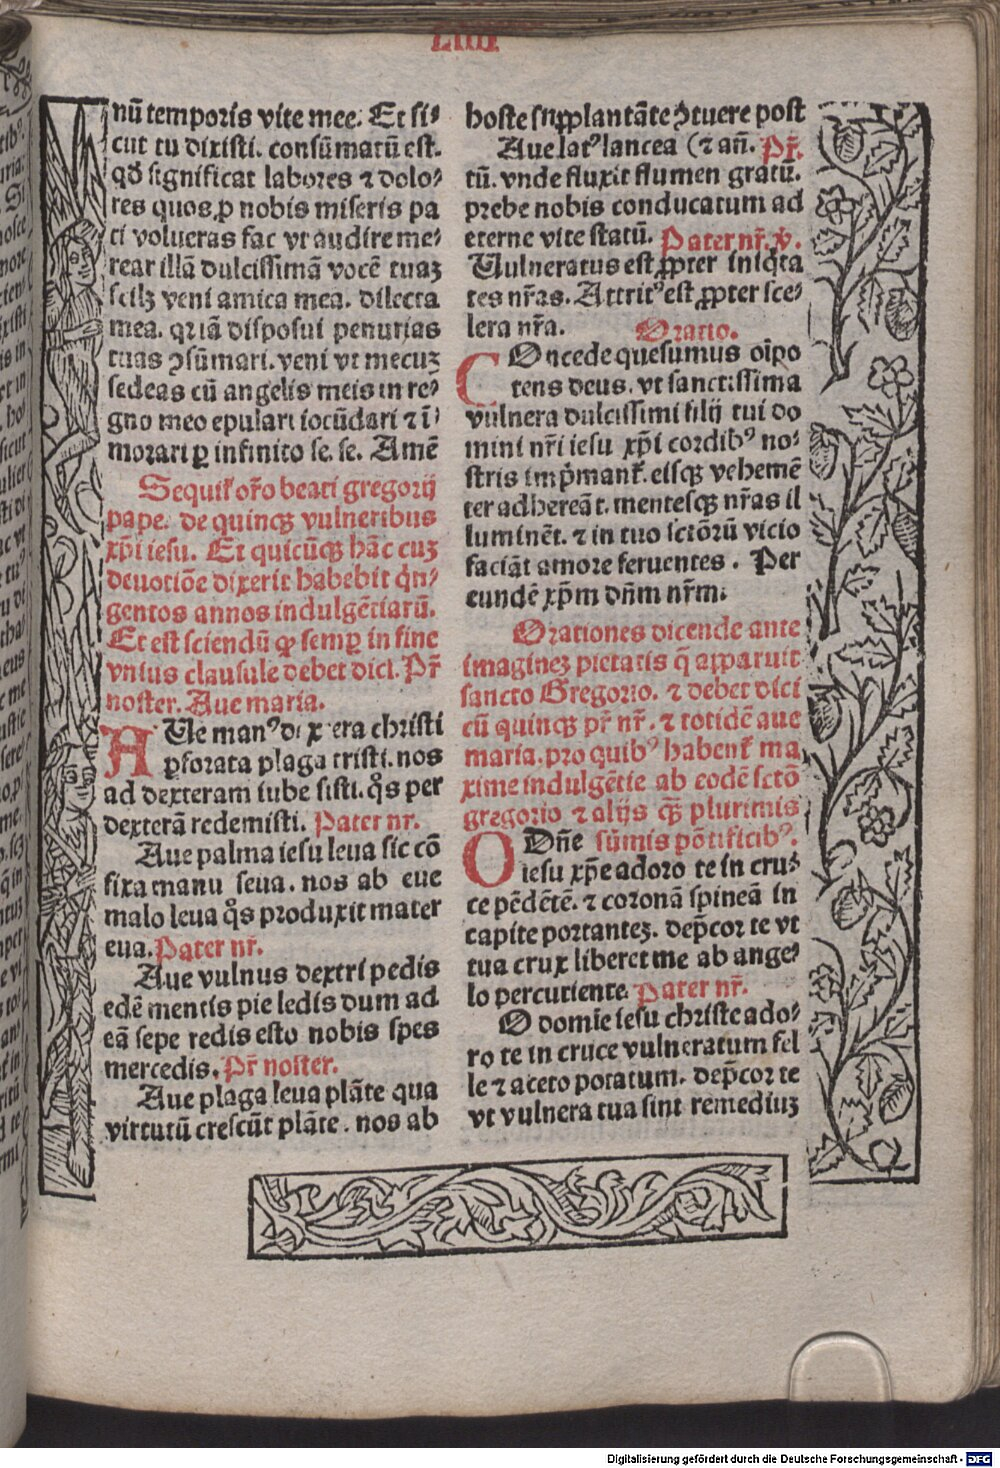 LIIII
nū temporis vite mee. Et si⸗
cut tu dixisti. consūmatū est.
qđ significat labores ⁊ dolo⸗
res quos ꝓ nobis miseris pa
ti volueras fac vt audire me⸗
rear illā dulcissimā vocē tuaꝫ
scilꝫ veni amica mea. dilecta
mea. quiā disposui penurias
tuas ꝯsūmari. veni vt mecuꝫ
sedeas cū angelis meis in re⸗
gno meo epulari iocūdari ⁊ ī⸗
morari ꝑ infinito se. se. Amē
Sequit̄ oro beati gregorij
pape. de quinqꝫ vulneribus
xp̄i iesu. Et quicūqꝫ hāc cuꝫ
deuotiōe dixerit habebit qn̄⸗
gentos annos indulgētiarū.
Et est sciendū ꝙ semꝑ in fine
vnius clausule debet dici. Pr̄
noster. Aue maria.
AUe manꝰ dextera christi
ꝑforata plaga tristi. nos
ad dexteram iube sisti. q̊s per
dexterā redemisti. Pater nr̄.
Aue palma iesu leua sic cō
fixa manu seua. nos ab eue
malo leua q̊s produxit mater
eua. Pater nr̄.
Aue vulnus dextri pedis
edē mentis pie ledis dum ad
eā sepe redis esto nobis spes
mercedis. Pr̄ noster.
Aue plaga leua plāte qua
virtutū crescūt plāte. nos ab
hoste supplantāte ꝯtuere post
Aue latꝰ lancea (⁊ an̄. Pr̄.
tū. vnde fluxit flumen gratū.
prebe nobis conducatum ad
eterne vite statū. Pater nr̄. v̊.
Uulneratus est ꝓpter iniq̇ta
tes nr̄as. Attritꝰ est ꝓpter sce⸗
lera nr̄a. Oratio.
COncede quesumus oīpo
tens deus. vt sanctissima
vulnera dulcissimi filij tui do
mini nr̄i iesu xp̄i cordibꝰ no⸗
stris imp̄mant̄. eisqꝫ vehemē
ter adhereāt. mentesqꝫ nr̄as il
luminēt. ⁊ in tuo sctōrū vicio
faciāt amore feruentes. Per
eundē xp̄m dn̄m nr̄m.
Orationes dicende ante
imagineꝫ pietatis q̄ apparuit
sancto Gregorio. ⁊ debet dici
cū quinqꝫ pr̄ nr̄. ⁊ totidē aue
maria. pro quibꝰ habent̄ ma
xime indulgētie ab eodē sctō
gregorio ⁊ alijs qꝫ plurimis
O Dn̄e sūmis pōtificibꝰ.
iesu xp̄e adoro te in cru⸗
ce pēdētē. ⁊ coronā spineā in
capite portanteꝫ. dep̄cor te vt
tua crux liberet me ab ange⸗
lo percutiente. Pater nr̄.
O domīe iesu christe ado⸗
ro te in cruce vulneratum fel
le ⁊ aceto potatum. dep̄cor te
vt vulnera tua sint remediuꝫ
Digitalisierung gefördert durch die Deutsche Forschungsgemeinschaft - DFG